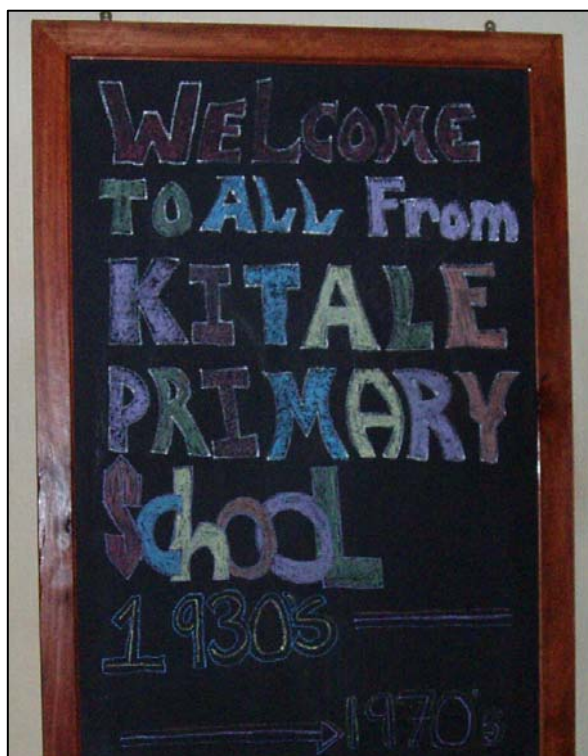 WELCOME
TO ALL From
KITALE
PRIMARY
SchooL
1930's
1970's